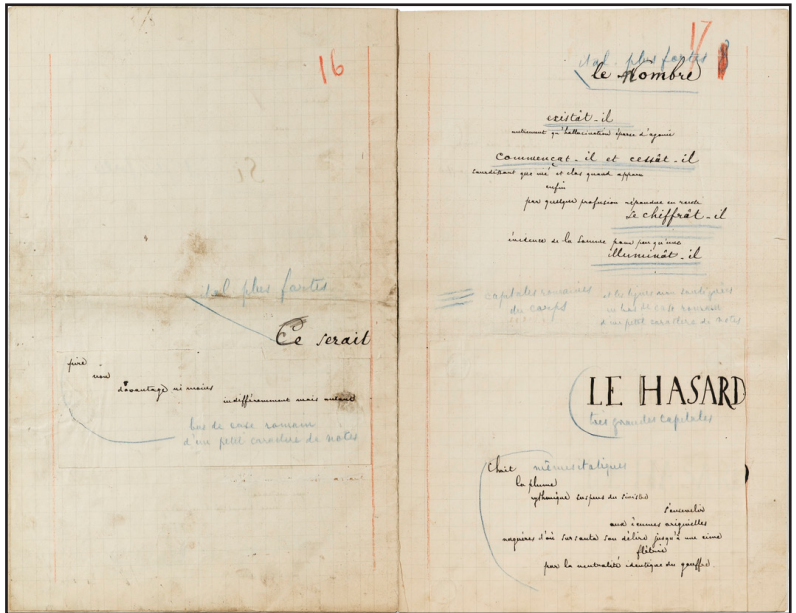 16
ital plus fortes
Ce serait
pire
non
davantage ni moins
indifféremment mais autant
bas de casse romain
d'un petit caractère de notes
17
ital. plus fortes
le Nombre
existât-il
autrement qu'hallucination éparse d'agonie
commençât-il et cessât-il
sourdant que nié et clos quand apparu
enfin
par quelque profusion répandue en rareté
se chiffrât-il
évidence de la somme pour peu qu'une
illuminât-il
capitales romaines
du corps
et les lignes non soulignées
en bas de casse romain
d'un petit caractère de notes
LE HASARD
très grandes capitales
Choit mêmes italiques
la plume
rythmique suspens du sinistre
s'ensevelir
aux écumes originelles
naguères d'où sursauta son délire jusqu'à une cime
flétrie
par la neutralité identique du gouffre